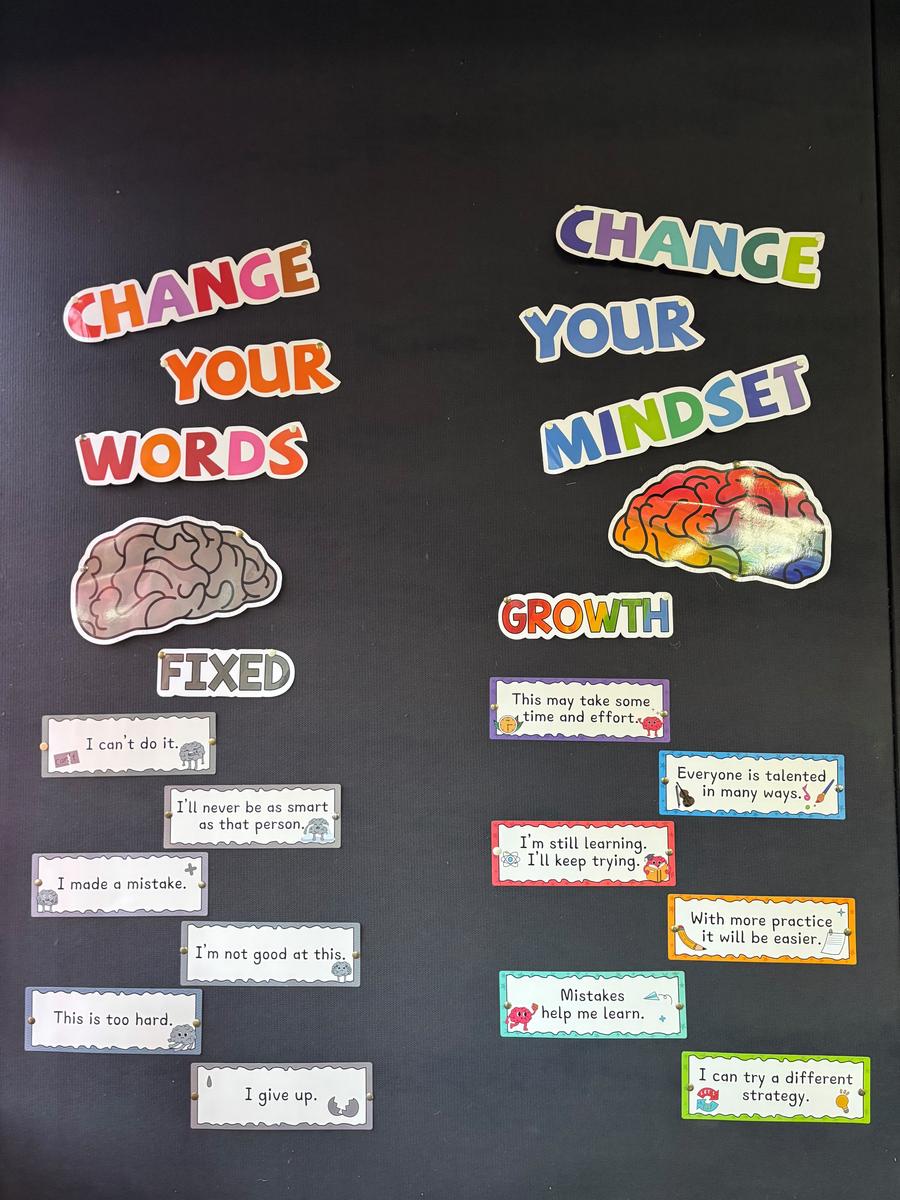 CHANGE
YOUR
WORDS
FIXED
I can't do it.
can't
I'll never be as smart
as that person.
I made a mistake.
I'm not good at this.
This is too hard.
I give up.
CHANGE
YOUR
MINDSET
GROWTH
This may take some
time and effort.
Everyone is talented
in many ways.
I'm still learning.
I'll keep trying.
With more practice
it will be easier.
Mistakes
help me learn.
I can try a different
strategy.